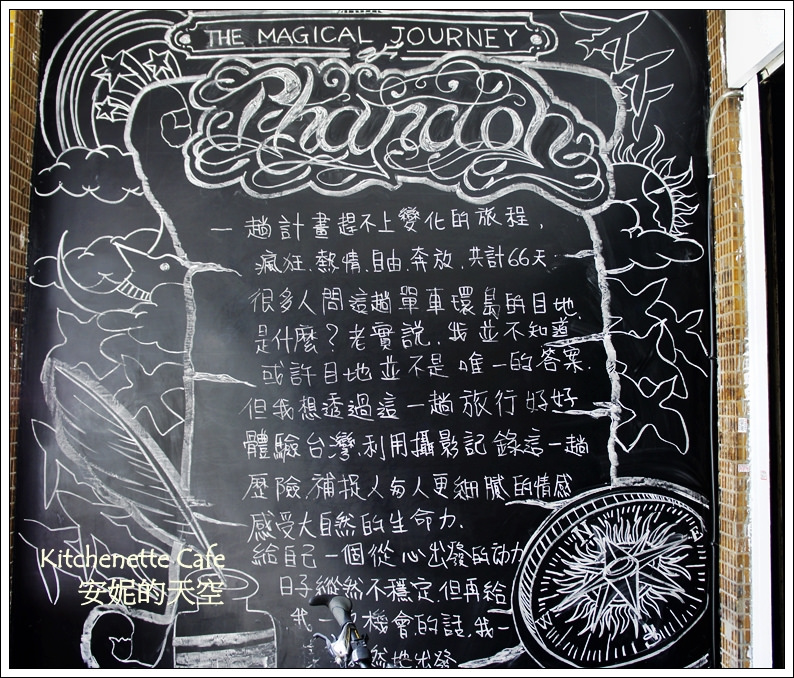 THE MAGICAL JOURNEY
of
Phandon
一趟計畫趕不上變化的旅程,
瘋狂.熱情.自由.奔放.共計66天
很多人問這趟單車環島的目地.
是什麼?老實說.我並不知道
或許目地並不是唯一的答案.
但我想透過這一趟旅行好好
體驗台灣.利用攝影記錄這一趟
歷險.補捉人與人更細膩的情感
感受大自然的生命力.
給自己一個從心出發的動力
日子縱然不穩定.但再給
我一 機會的話.我一
然地出發
Kitchenette Cafe
安妮的天空
E
W